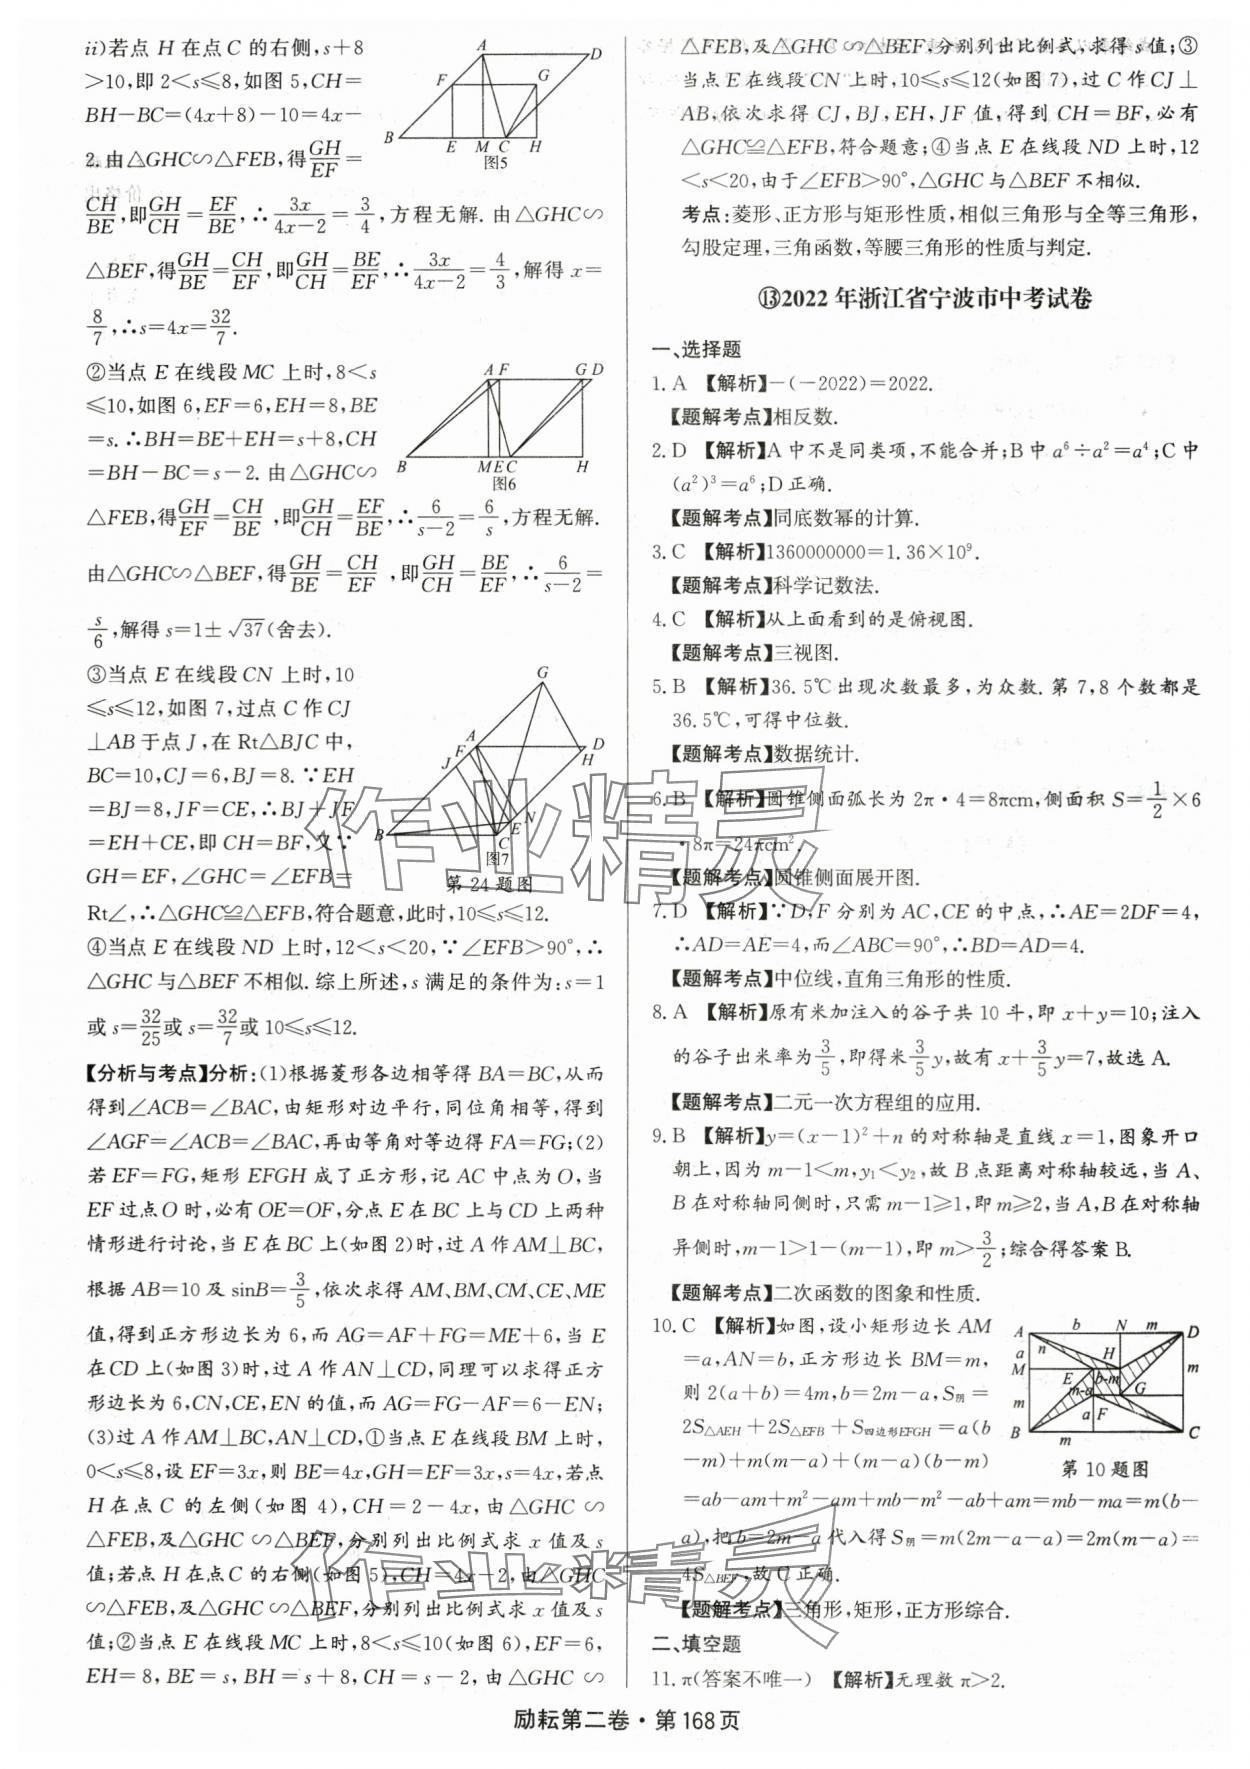 ii)若点 H 在点 C 的右侧,s+8
>10,即 2<s≤8,如图 5,CH=
BH-BC=(4x+8)-10=4x-
2.由△GHC∽△FEB,得GH/EF=
CH/BE,即GH/CH=EF/BE,∴3x/(4x-2)=3/4,方程无解.由△GHC∽
△BEF,得GH/BE=CH/EF,即GH/CH=BE/EF,∴3x/(4x-2)=4/3,解得 x=
8/7,∴s=4x=32/7.
A D F G B E M C H
图5
②当点 E 在线段 MC 上时,8<s
≤10,如图 6,EF=6,EH=8,BE
=s.∴BH=BE+EH=s+8,CH
=BH-BC=s-2.由△GHC∽
△FEB,得GH/EF=CH/BE,即GH/CH=EF/BE,∴6/(s-2)=6/s,方程无解.
由△GHC∽△BEF,得GH/BE=CH/EF,即GH/CH=BE/EF,∴6/(s-2)=
s/6,解得 s=1±√37(舍去).
A F G D B M E C H
图6
③当点 E 在线段 CN 上时,10
≤s≤12,如图 7,过点 C 作 CJ
⊥AB 于点 J,在 Rt△BJC 中,
BC=10,CJ=6,BJ=8.∵EH
=BJ=8,JF=CE,∴BJ+JF
=EH+CE,即 CH=BF,又∵
GH=EF,∠GHC=∠EFB=
Rt∠,∴△GHC≌△EFB,符合题意,此时,10≤s≤12.
G A D F J H B N E C
图7
第 24 题图
④当点 E 在线段 ND 上时,12<s<20,∵∠EFB>90°,∴
△GHC 与△BEF 不相似.综上所述,s 满足的条件为:s=1
或 s=32/25或 s=32/7或 10≤s≤12.
【分析与考点】分析:(1)根据菱形各边相等得 BA=BC,从而
得到∠ACB=∠BAC,由矩形对边平行,同位角相等,得到
∠AGF=∠ACB=∠BAC,再由等角对等边得 FA=FG;(2)
若 EF=FG,矩形 EFGH 成了正方形,记 AC 中点为 O,当
EF 过点 O 时,必有 OE=OF,分点 E 在 BC 上与 CD 上两种
情形进行讨论,当 E 在 BC 上(如图 2)时,过 A 作 AM⊥BC,
根据 AB=10 及 sinB=3/5,依次求得 AM、BM、CM、CE、ME
值,得到正方形边长为 6,而 AG=AF+FG=ME+6,当 E
在 CD 上(如图 3)时,过 A 作 AN⊥CD,同理可以求得正方
形边长为 6,CN,CE,EN 的值,而 AG=FG-AF=6-EN;
(3)过 A 作 AM⊥BC,AN⊥CD,①当点 E 在线段 BM 上时,
0<s≤8,设 EF=3x,则 BE=4x,GH=EF=3x,s=4x,若点
H 在点 C 的左侧(如图 4),CH=2-4x,由△GHC∽
△FEB,及△GHC∽△BEF,分别列出比例式求 x 值及 s
值;若点 H 在点 C 的右侧(如图 5),CH=4x-2,由△GHC
∽△FEB,及△GHC∽△BEF,分别列出比例式求 x 值及 s
值;②当点 E 在线段 MC 上时,8<s≤10(如图 6),EF=6,
EH=8,BE=s,BH=s+8,CH=s-2,由△GHC∽
△FEB,及△GHC∽△BEF,分别列出比例式,求得 s 值;③
当点 E 在线段 CN 上时,10≤s≤12(如图 7),过 C 作 CJ⊥
AB,依次求得 CJ,BJ,EH,JF 值,得到 CH=BF,必有
△GHC≌△EFB,符合题意;④当点 E 在线段 ND 上时,12
<s<20,由于∠EFB>90°,△GHC 与△BEF 不相似.
考点:菱形、正方形与矩形性质,相似三角形与全等三角形,
勾股定理,三角函数,等腰三角形的性质与判定.
⑬2022 年浙江省宁波市中考试卷
一、选择题
1.A 【解析】-(-2022)=2022.
【题解考点】相反数.
2.D 【解析】A 中不是同类项,不能合并;B 中 a⁶÷a²=a⁴;C 中
(a²)³=a⁶;D 正确.
【题解考点】同底数幂的计算.
3.C 【解析】1360000000=1.36×10⁹.
【题解考点】科学记数法.
4.C 【解析】从上面看到的是俯视图.
【题解考点】三视图.
5.B 【解析】36.5℃出现次数最多,为众数.第 7,8 个数都是
36.5℃,可得中位数.
【题解考点】数据统计.
6.B 【解析】圆锥侧面弧长为 2π·4=8πcm,侧面积 S=1/2×6
·8π=24πcm².
【题解考点】圆锥侧面展开图.
7.D 【解析】∵D,F 分别为 AC,CE 的中点,∴AE=2DF=4,
∴AD=AE=4,而∠ABC=90°,∴BD=AD=4.
【题解考点】中位线,直角三角形的性质.
8.A 【解析】原有米加注入的谷子共 10 斗,即 x+y=10;注入
的谷子出米率为3/5,即得米3/5y,故有 x+3/5y=7,故选 A.
【题解考点】二元一次方程组的应用.
9.B 【解析】y=(x-1)²+n 的对称轴是直线 x=1,图象开口
朝上,因为 m-1<m,y₁<y₂,故 B 点距离对称轴较远,当 A、
B 在对称轴同侧时,只需 m-1≥1,即 m≥2,当 A,B 在对称轴
异侧时,m-1>1-(m-1),即 m>3/2;综合得答案 B.
【题解考点】二次函数的图象和性质.
10.C 【解析】如图,设小矩形边长 AM
=a,AN=b,正方形边长 BM=m,
则 2(a+b)=4m,b=2m-a,S阴=
2S△AEH+2S△EFB+S四边形EFGH=a(b
-m)+m(m-a)+(m-a)(b-m)
=ab-am+m²-am+mb-m²-ab+am=mb-ma=m(b-
a),把 b=2m-a 代入得 S阴=m(2m-a-a)=2m(m-a)=
4S△BEF,故 C 正确.
A b N m D a n H M E b-m m m-a G m a F B m C
第 10 题图
【题解考点】三角形,矩形,正方形综合.
二、填空题
11.π(答案不唯一) 【解析】无理数 π>2.
励耘第二卷·第 168 页
作业精灵
作业精灵